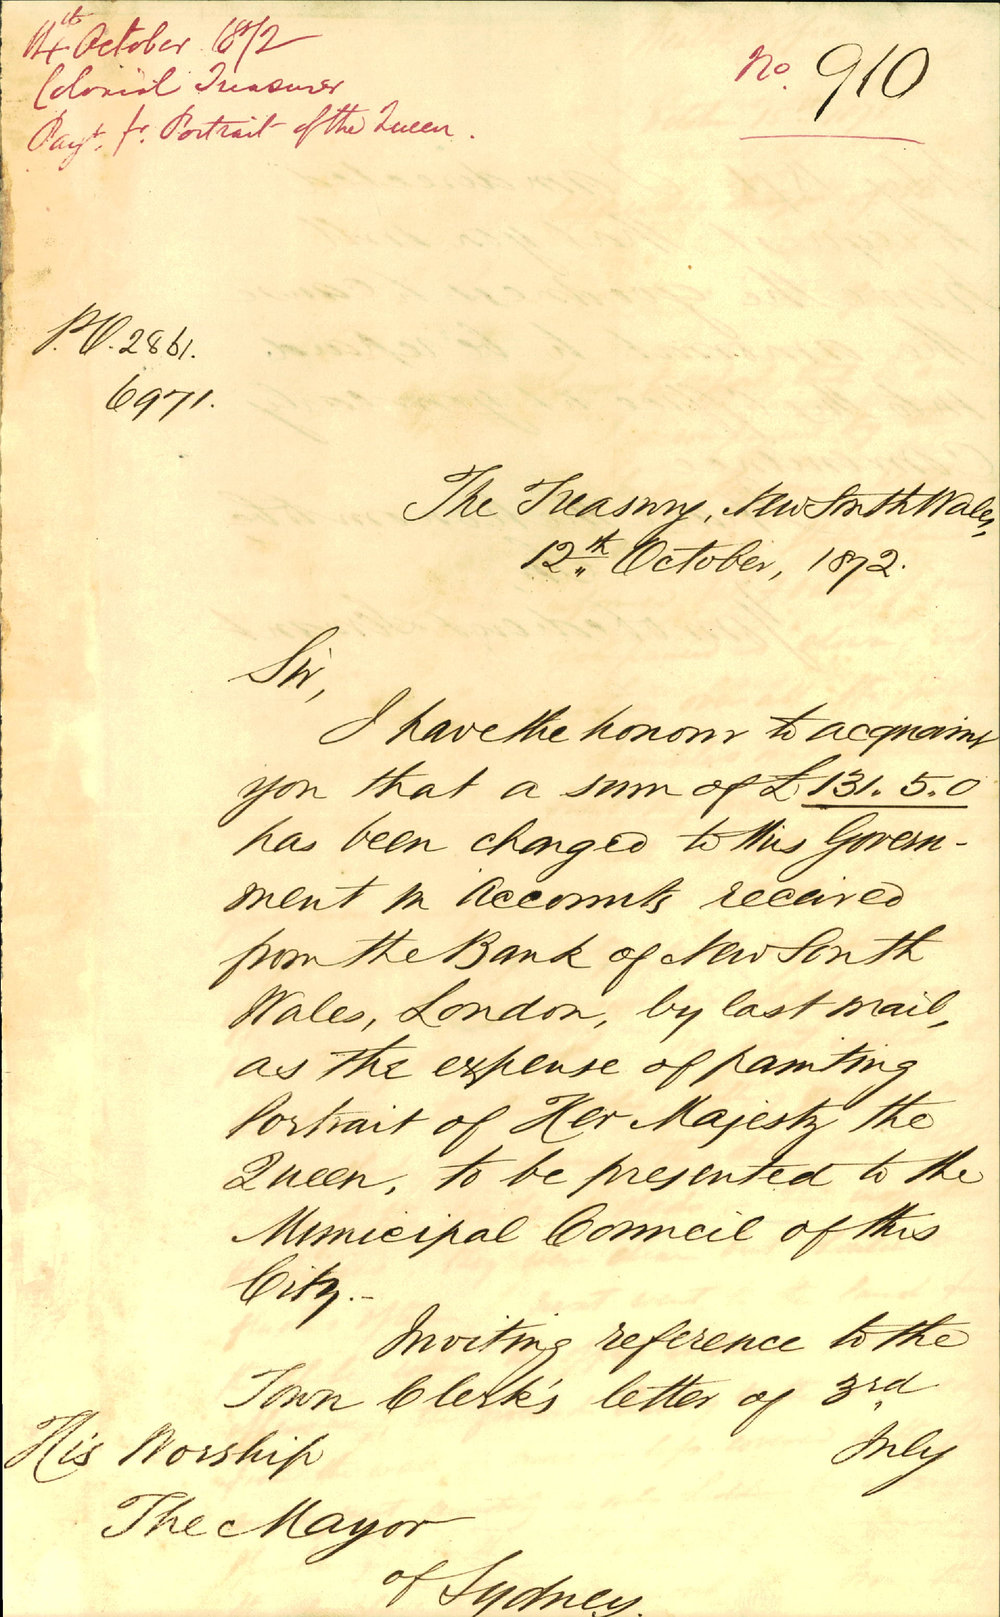 14th October 1872
Colonial Treasurer
Payt. fr. Portrait of the Queen.
No. 910
P.O. 2861.
6971.
The Treasury, New South Wales,
12th October, 1872.
Sir,
I have the honour to acquaint
you that a sum of £131.5.0
has been charged to this Govern-
ment in Accounts received
from the Bank of New South
Wales, London, by last mail,
as the expense of painting
Portrait of Her Majesty the
Queen, to be presented to the
Municipal Council of this
City.-
Inviting reference to the
Town Clerk's letter of 3rd
July
His Worship
The Mayor
of Sydney.